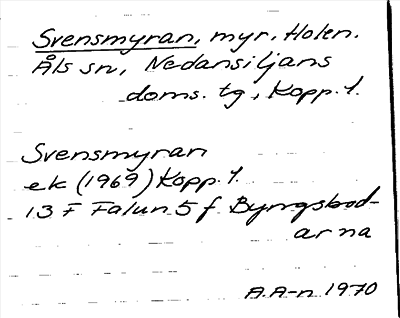 Svensmyran, myr, Holen.
Åls sn, Nedansiljans
doms. tg, Kopp. l.
Svensmyran
ek (1969) Kopp. l.
13 F Falun 5 f Byrngsbod-
arna
A.A-n 1970